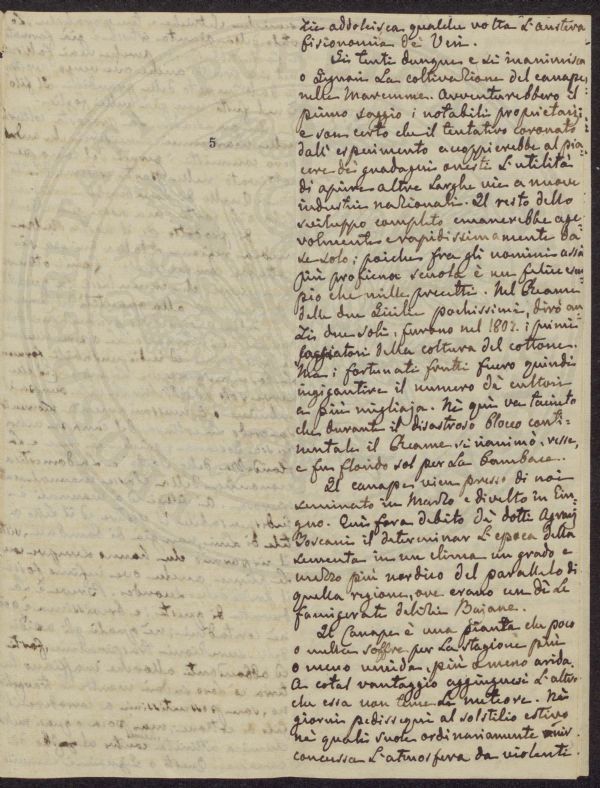 zie addolcisca qualche volta l'austera
fisionomia de' Veri.
Si tenti dunque e si inanimisca
o Signori la coltivazione del canape
nelle Maremme. Avventurebbero il
primo saggio i notabili proprietarii
e son certo che il tentativo coronato
dall'esperimento accoppierebbe al pia-
cere dei guadagni onesti l'utilità
di aprire altre larghe vie a nuove
industrie nazionali. Il resto dello
sviluppo completo emanerebbe age-
volmente e rapidissimamente da
se solo; poiche fra gli uomini assai
più proficua scuola è un felice esem-
pio che mille precetti. Nel Reame
delle due Sicilie pochissimi, dirò an-
zi due soli, furono nel 1802. i primi
saggiatori della coltura del cottone.
Ma i fortunati frutti fuero quindi
ingigantire il numero di cultori
a più migliaja. Nè quì va taciuto
che durante il disastroso blocco conti-
nentale il Reame si rianimò, resse,
e fu florido sol per la bombace.
Il canape vien presso di noi
seminato in Marzo e divelto in Giu-
gno. Quì fora debito di dotti Agrarj
Toscani il determinar l'epoca della
sementa in un clima un grado e
mezzo più nordico del parallelo di
quella regione, ove erano un dì le
famigerate delizie Bajane.
Il Canape è una pianta che poco
o nulla soffre per la stagione più
o meno umida, più o meno arida.
A cotal vantaggio aggiugnesi l'altro
che essa non teme le meteore. Nei
giorni pedissequi al solstizio estivo
nè quali suole ordinariamente
concussa l'atmosfera da violenti
5